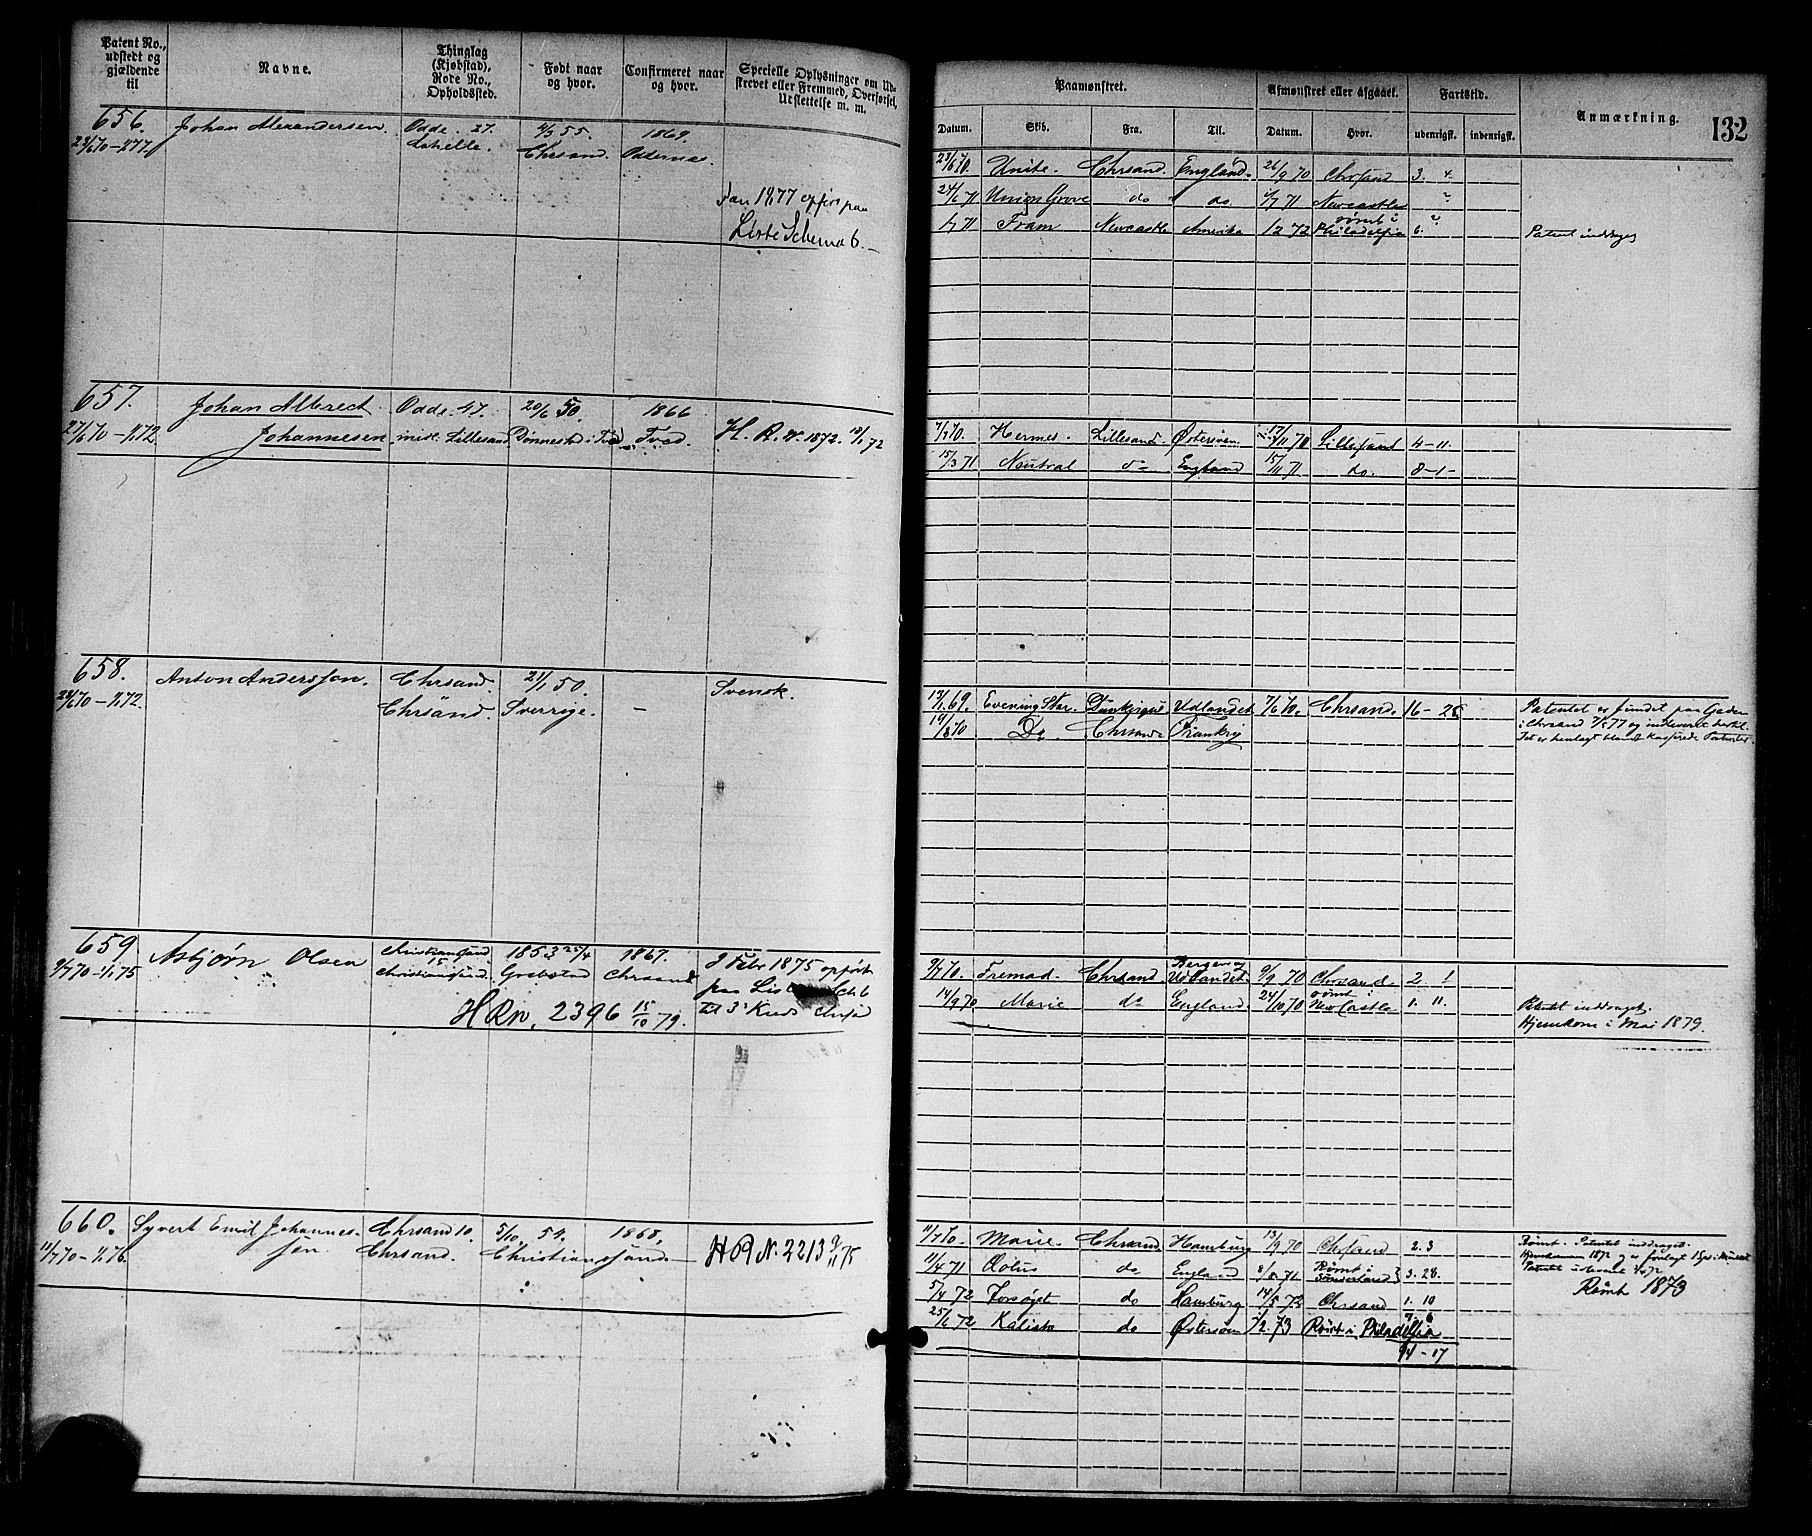 Patent No., udstedt og gjældende til
Navne.
Thinglag (Kjøbstad), Rode No., Opholdssted.
Født naar og hvor.
Confirmeret naar og hvor.
Specielle Oplysninger om Udskrevet eller Fremmed, Overførsel, Udslettelse m. m.
Paamønstret.
Afmønstret eller afgaaet.
Fartstid.
Anmærkning.
132
Datum.
Skib.
Fra.
Til.
Datum.
Hvor.
udenrigsk.
indenrigsk.
656. Johan Alexandersen. Odde. 27. 4/3 55. 1869.
23/6 70 – 1/1 77. Chrsand. Oddernæs.
Jan 1877 opført paa
Liste Schema 6. –
23/6 70. Unite. Chrsand. England. 26/9 70 Chrsand 3. 4.
24/6 71 Union Grove do do. 1/7 71 Newcastle ?
1/7 71 Fram Newcastle Amerika 1/2 72 rømt i Philadelfia 6. ? Patent inddrages
657. Johan Albrect Odde. 47. 20/6 50. 1866
27/6 70 – 1/1 72. Johannesen midl. Lillesand Tved. H. R. No 1872. 18/1 72
7/7 70. Hermes. Lillesand. Østersøen. 17/11 70 Lillesand 4 – 11.
15/3 71 Neutral do England 15/11 71 do. 8 – 1 –
658. Anton Anderssen. Chrsand. 21/1 50. Svensk.
28/6 70 – 1/1 72. Chrsand. Sverrige. –
13/1 69. Evening Star. Udlandet 7/6 70. Chrsand. 16 – 25 Patentet er fundet paa Gaden
19/8 70 Do Chrsand Frankrig i Chrsand 7/5 77 og indleveret hertil.
Det er henlagt blandt Kasserede Patenter
659 Asbjørn Olsen Christianssand 1853 25/4 1867. 9 Febr 1875 opført
9/7 70 – 1/1 75 15 Christianssand. Chrsand paa Liste Sch 6
HRn. 2396 15/10 79. til 3'
9/7 70. Fremad. Chrsand. Bergen og Udlandet 9/9 70 Chrsand 2 1
14/9 70 Marie do England 24/10 70 rømt i New Castle 1. 11. Patent inddraget.
Hjemkom i Mai 1879.
660. Syvert Emil Johannessen. Chrsand 10. 5/10. 54. 1868.
11/7 70 – 1/1 76. Chrsand. Christianssand – H R N. 2213 9/11 75
11/7 70. Marie. Chrsand Hamburg 13/9 70 Chrsand 2. 3 Rømt. Patentet inddraget.
11/4 71 Æolus do England 8/8 71 Rømt i Sunderland 3. 28.
5/4 72 Forsøget do Hamburg 14/5 72 Chrsand 1. 10 Rømt 1873
25/6 72 Kalista do Østersøen 1/2. 73 Rømt i Philadelfia 7 6
14 – 17